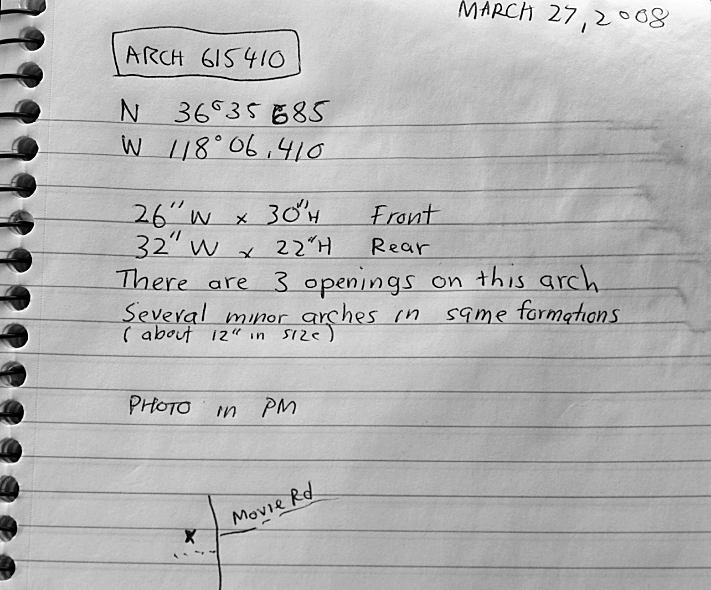 MARCH 27, 2008
ARCH 615410
N 36°35 685
W 118°06.410
26" W x 30" H Front
32" W x 22" H Rear
There are 3 openings on this arch
Several minor arches in same formations
(about 12" in size)
PHOTO in PM
Movie Rd
x